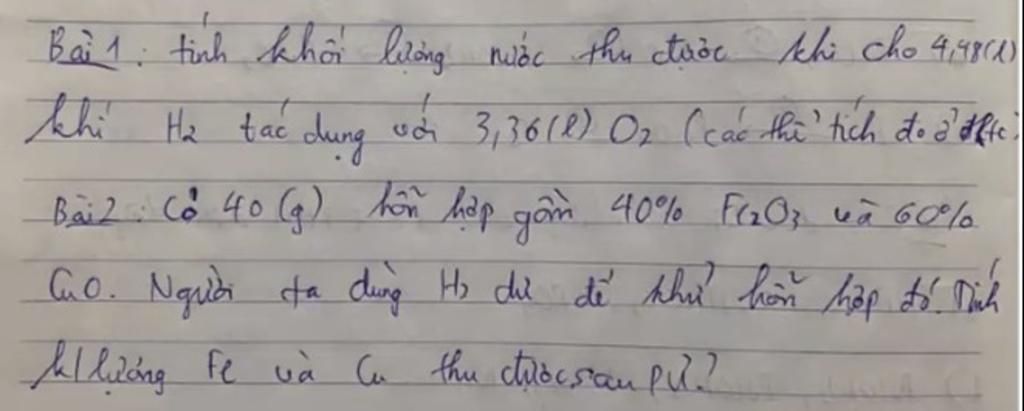 Bài 1: tính khối lượng nước thu được khi cho 4,48(l)
khí H2 tác dụng với 3,36(l) O2 (các thể tích đo ở đktc)
Bài 2: Có 40 (g) hỗn hợp gồm 40% Fe2O3 và 60%
CuO. Người ta dùng H2 dư để khử hỗn hợp đó. Tính
k/lượng Fe và Cu thu được sau pư?